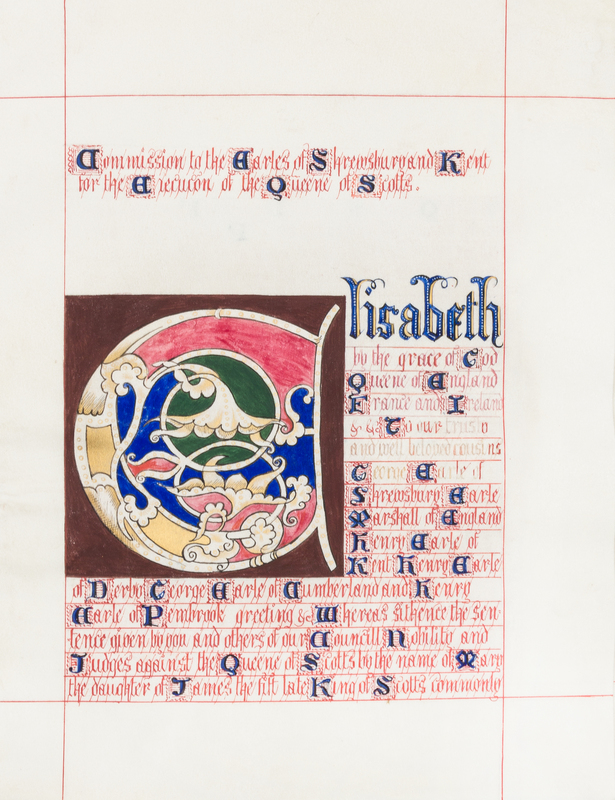 Commission to the Earles of Shrewsbury and Kent
for the Execucon of the Queene of Scotts.
Elisabeth
by the grace of God
Queene of England
France and Ireland
&c To our trusty
and well beloved cousins
George Earle of
Shrewsbury Earle
Marshall of England
Henry Earle of
Kent Henry Earle
of Derby George Earle of Cumberland and Henry
Earle of Pembrook greeting &c Whereas sithence the sen-
tence given by you and others of our Councill Nobility and
Judges against the Queene of Scotts by the name of Mary
the daughter of James the fift late King of Scotts commonly